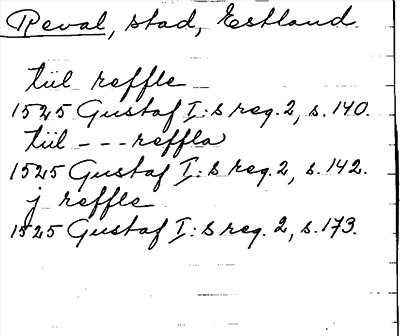 Reval, stad, Estland.
tiil reffle
1525 Gustaf I:s reg. 2, s. 140.
tiil - - - reffla
1525 Gustaf I:s reg. 2, s. 142.
j reffle
1525 Gustaf I:s reg. 2, s. 173.